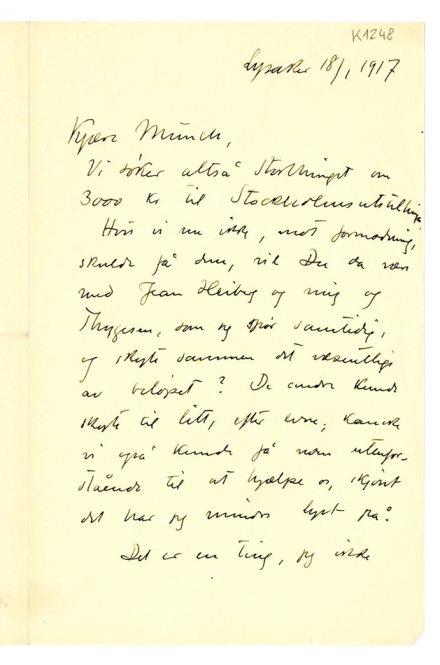 K1248
Lysaker 18/1 1917
Kjære Munch,
Vi søker altså Storthinget om
3000 kr til Stockholmsutstillinga
Hvis vi nu ikke, mot formodning,
skulde få dem, vil Du da være
med Jean Heiberg og mig og
Thygesen, som jeg spør samtidig,
og skyte sammen det væsentlige
av beløpet? De andre kunde
skyte til litt, efter evne; kanske
vi også kunde få noen utenfor-
stående til at hjælpe os, skjønt
det har jeg mindre lyst på.
Det er en ting, jeg ikke